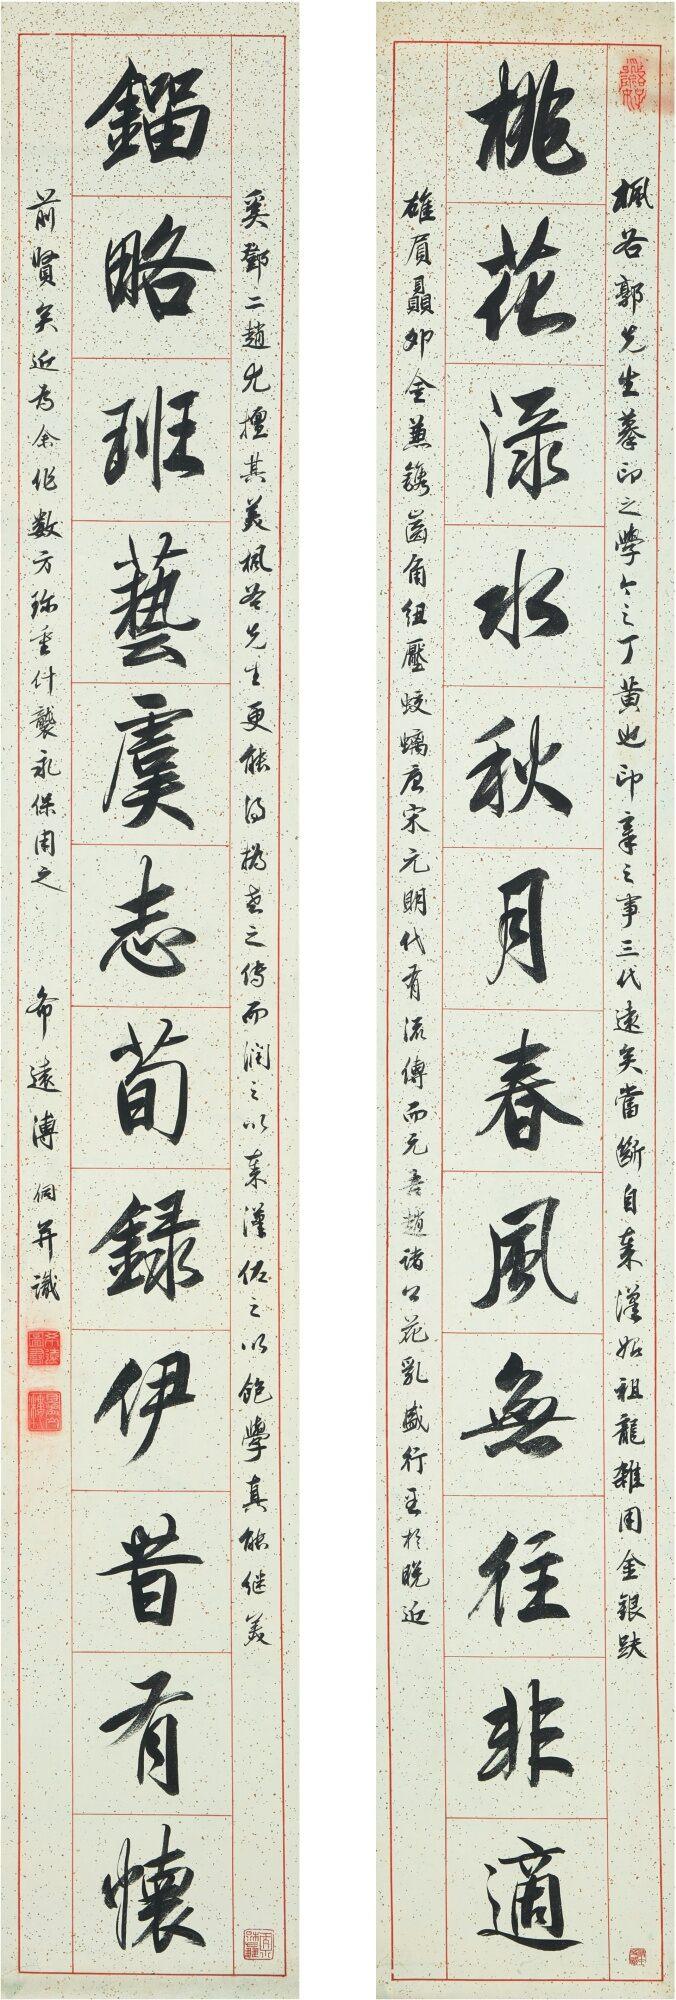 桃花渌水秋月春風無往非適
楓谷郭先生摹印之學今之丁黄也印章之事三代遠矣當斷自秦漢始祖龍雜用金銀趺
雄眉贔卯金兼鐫齒角紐壓蛟螭唐宋元明代有流傳而元吾趙諸公花乳盛行至於晚近
鎦略班藝虞志荀録伊昔有懷
奚鄧二趙尤擅其美楓谷先生更能得攟叔之傳而潤之以秦漢佐之以飽學真能繼美
前賢矣近為余作數方珍重什襲永保用之
希遠溥侗并識